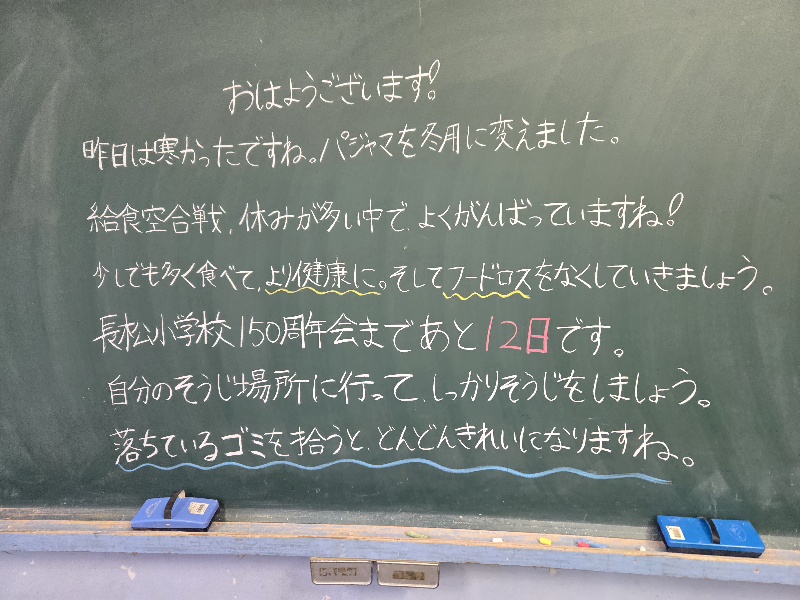 おはようございます!
昨日は寒かったですね。パジャマを冬用に変えました。
給食空合戦、休みが多い中で、よくがんばっていますね!
少しでも多く食べて、より健康に。そしてフードロスをなくしていきましょう。
長松小学校150周年会まであと12日です。
自分のそうじ場所に行って、しっかりそうじをしましょう。
落ちているゴミを拾うと、どんどんきれいになりますね。